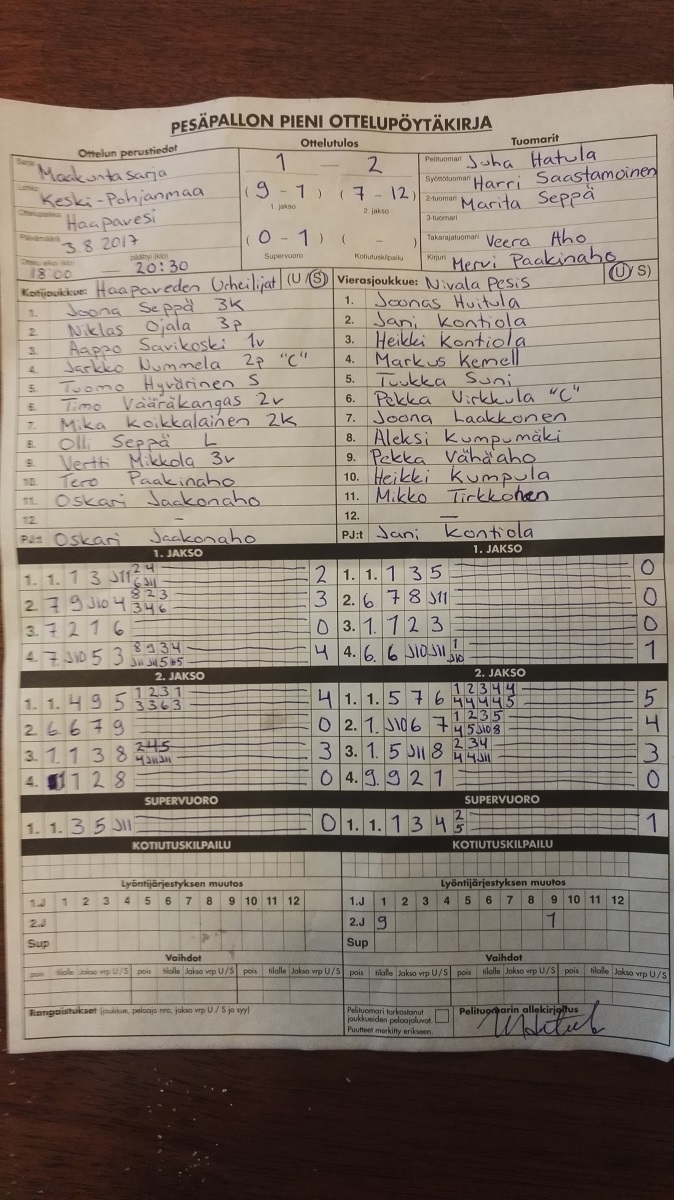 PESÄPALLON PIENI OTTELUPÖYTÄKIRJA
Ottelun perustiedot
Ottelutulos
Tuomarit
Maakuntasarja
Keski-Pohjanmaa
Haapavesi
3.8 2017
18:00 — 20:30
1 — 2
(9 - 1) (7 - 12)
1. jakso 2. jakso
(0 - 1) ( - )
Supervuoro Kotiutuskilpailu
Pelituomari Juha Hatula
Syöttötuomari Harri Saastamoinen
2-tuomari Marita Seppä
3-tuomari
Takarajatuomari Veera Aho
Kirjuri Mervi Paakinaho
Kotijoukkue: Haapaveden Urheilijat (U/S)
1. Joona Seppä 3K
2. Niklas Ojala 3p
3. Aappo Savikoski 1v
4. Jarkko Nummela 2p "C"
5. Tuomo Hyvärinen S
6. Timo Vääräkangas 2v
7. Mika Koikkalainen 2K
8. Olli Seppä L
9. Vertti Mikkola 3v
10. Tero Paakinaho
11. Oskari Jaakonaho
12. —
PJ:t Oskari Jaakonaho
Vierasjoukkue: Nivala Pesis (U/S)
1. Joonas Huitula
2. Jani Kontiola
3. Heikki Kontiola
4. Markus Kemell
5. Tuukka Suni
6. Pekka Virkkula "C"
7. Joona Laakkonen
8. Aleksi Kumpumäki
9. Pekka Vähäaho
10. Heikki Kumpula
11. Mikko Tirkkonen
12. —
PJ:t Jani Kontiola
1. JAKSO
1. 1. 1 3 J11 2 4 2
6 J11
2. 7 9 J10 4 8 2 3 3
3 4 6
3. 7 2 1 6 0
4. 7 J10 5 3 8 9 3 4 4
1. JAKSO
1. 1. 1 3 5 0
2. 6 7 8 J11 0
3. 1. 1 2 3 0
4. 6. 6 J10 J11 1 1
J10
2. JAKSO
1. 1. 4 9 5 1 2 3 1 4
3 3 6 3
2. 6 6 7 9 0
3. 1. 1 3 8 2 4 5 3
4 J11 J11
4. 1 2 8 0
2. JAKSO
1. 1. 5 7 6 1 2 3 4 4 5
4 4 4 4 5
2. 1. J10 6 7 1 2 3 5 4
4 5 J10 8
3. 1. 5 J11 8 2 3 4 3
4 4 J11
4. 9. 9 2 1 0
SUPERVUORO
1. 1. 3 5 J11 0
SUPERVUORO
1. 1. 1 3 4 2 1
5
KOTIUTUSKILPAILU
KOTIUTUSKILPAILU
Lyöntijärjestyksen muutos
1.J 1 2 3 4 5 6 7 8 9 10 11 12
2.J
Sup
Lyöntijärjestyksen muutos
1.J 1 2 3 4 5 6 7 8 9 10 11 12
2.J 9 1
Sup
Vaihdot
pois tilalle Jakso vrp U/S pois tilalle Jakso vrp U/S pois tilalle Jakso vrp U/S
Vaihdot
pois tilalle Jakso vrp U/S pois tilalle Jakso vrp U/S pois tilalle Jakso vrp U/S
Rangaistukset (joukkue, pelaaja nro, jakso vrp U / S ja syy)
Pelituomari tarkastanut
joukkueiden pelaajaluvat.
Puutteet merkitty erikseen.
Pelituomarin allekirjoitus